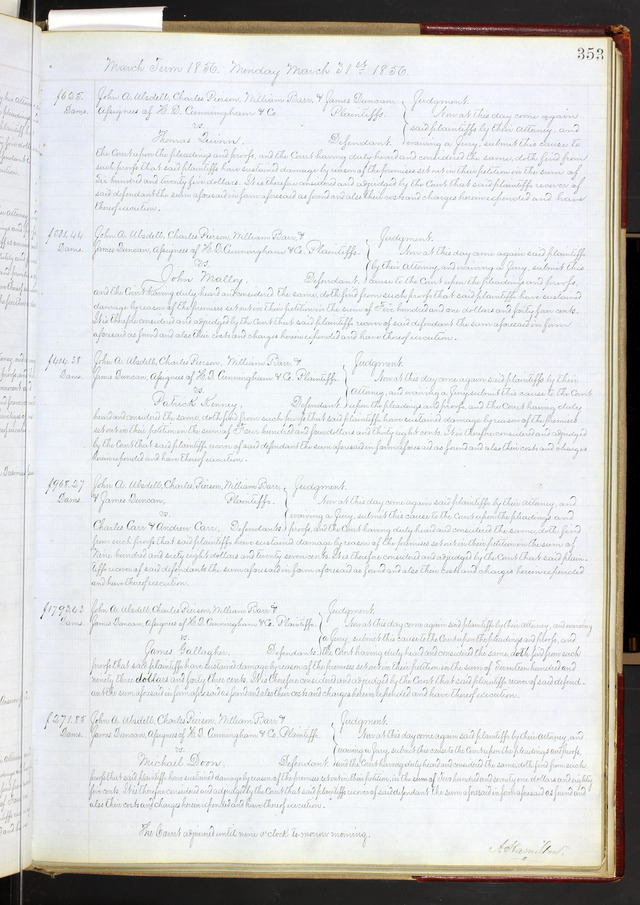 353
March Term 1856. Monday March 31st 1856.
$625. John A. Ubsdell, Charles Pierson, William Barr, & James Duncan Judgment.
Dams. Assignees of H. D. Cunningham & Co. Plaintiffs. Now at this day come again
vs said plaintiffs by their Attorney, and
Thomas Quinn. Defendant. waiving a Jury, submit this cause to
the Court upon the pleadings and proofs, and the Court having duly heard and considered the same, doth find from
such proofs that said plaintiffs have sustained damage by reason of the premises set out in their petition in the sum of
Six hundred and twenty five dollars. It is therefore considered and adjudged by the Court that said plaintiffs recover of
said defendant the sum aforesaid in form aforesaid as found and also their costs and charges herein expended and have
thereof execution.
John A. Ubsdell, Charles Pierson, William Barr & Judgment.
Dams. James Duncan, Assignees of H. D. Cunningham & Co. Plaintiffs. Now at this day come again said plaintiffs
vs. by their Attorney, and waiving a Jury, submit this
John Malloy. Defendant. cause to the Court upon the pleadings and proofs,
and the Court having duly heard and considered the same, doth find from such proofs that said plaintiffs have sustained
damage by reason of the premises set out in their petition in the sum of Five hundred and one dollars and forty four cents.
It is therefore considered and adjudged by the Court that said plaintiffs recover of said defendant the sum aforesaid in form
aforesaid as found and also their costs and charges herein expended and have thereof execution.
$414.38 John A. Ubsdell, Charles Pierson, William Barr & Judgment.
Dams. James Duncan, Assignees of H. D. Cunningham & Co. Plaintiffs. Now at this day come again said plaintiffs by their
vs. Attorney, and waiving a Jury, submit this cause to the Court
Patrick Kenney. Defendant. upon the pleadings and proofs, and the Court having duly
heard and considered the same, doth find from such proofs that said plaintiffs have sustained damage by reason of the premises
set out in their petition in the sum of Four hundred and fourteen dollars and thirty eight cents. It is therefore considered and adjudged
by the Court that said plaintiffs recover of said defendant the sum aforesaid in form aforesaid as found and also their costs and charges
herein expended and have thereof execution.
$968.27 John A. Ubsdell, Charles Pierson, William Barr Judgment.
Dams. & James Duncan, Plaintiffs. Now at this day come again said plaintiffs by their Attorney, and
vs. waiving a Jury, submit this cause to the Court upon the pleadings and
Charles Carr & Andrew Carr, Defendants. proofs, and the Court having duly heard and considered the same, doth find
from such proofs that said plaintiffs have sustained damage by reason of the premises set out in their petition in the sum of
Nine hundred and sixty eight dollars and twenty seven cents. It is therefore considered and adjudged by the Court that said plain-
tiffs recover of said defendants the sum aforesaid in form aforesaid as found and also their costs and charges herein expended
and have thereof execution.
John A. Ubsdell, Charles Pierson, William Barr & Judgment.
Dams. James Duncan, Assignees of H. D. Cunningham & Co. Plaintiffs. Now at this day come again said plaintiffs by their Attorney, and waiving
vs. a Jury, submit this cause to the Court upon the pleadings and proofs, and
James Gallagher. Defendant. the Court having duly heard and considered the same, doth find from such
proofs that said plaintiffs have sustained damage by reason of the premises set out in their petition in the sum of Seventeen hundred and
ninety three dollars and forty three cents. It is therefore considered and adjudged by the Court that said plaintiffs recover of said defend-
ant the sum aforesaid in form aforesaid as found and also their costs and charges herein expended and have thereof execution.
$271.85 John A. Ubsdell, Charles Pierson, William Barr & Judgment.
Dams. James Duncan, Assignees of H. D. Cunningham & Co. Plaintiffs. Now at this day come again said plaintiffs by their Attorney, and
vs. waiving a Jury, submit this cause to the Court upon the pleadings and proofs,
Michael Doon. Defendant. and the Court having duly heard and considered the same, doth find from such
proofs that said plaintiffs have sustained damage by reason of the premises set out in their petition, in the sum of Two hundred and seventy one dollars and eighty
five cents. It is therefore considered and adjudged by the Court that said plaintiffs recover of said defendant the sum aforesaid in form aforesaid as found and
also their costs and charges herein expended and have thereof execution.
The Court adjourned until nine o'clock to morrow morning.
A. Hamilton.